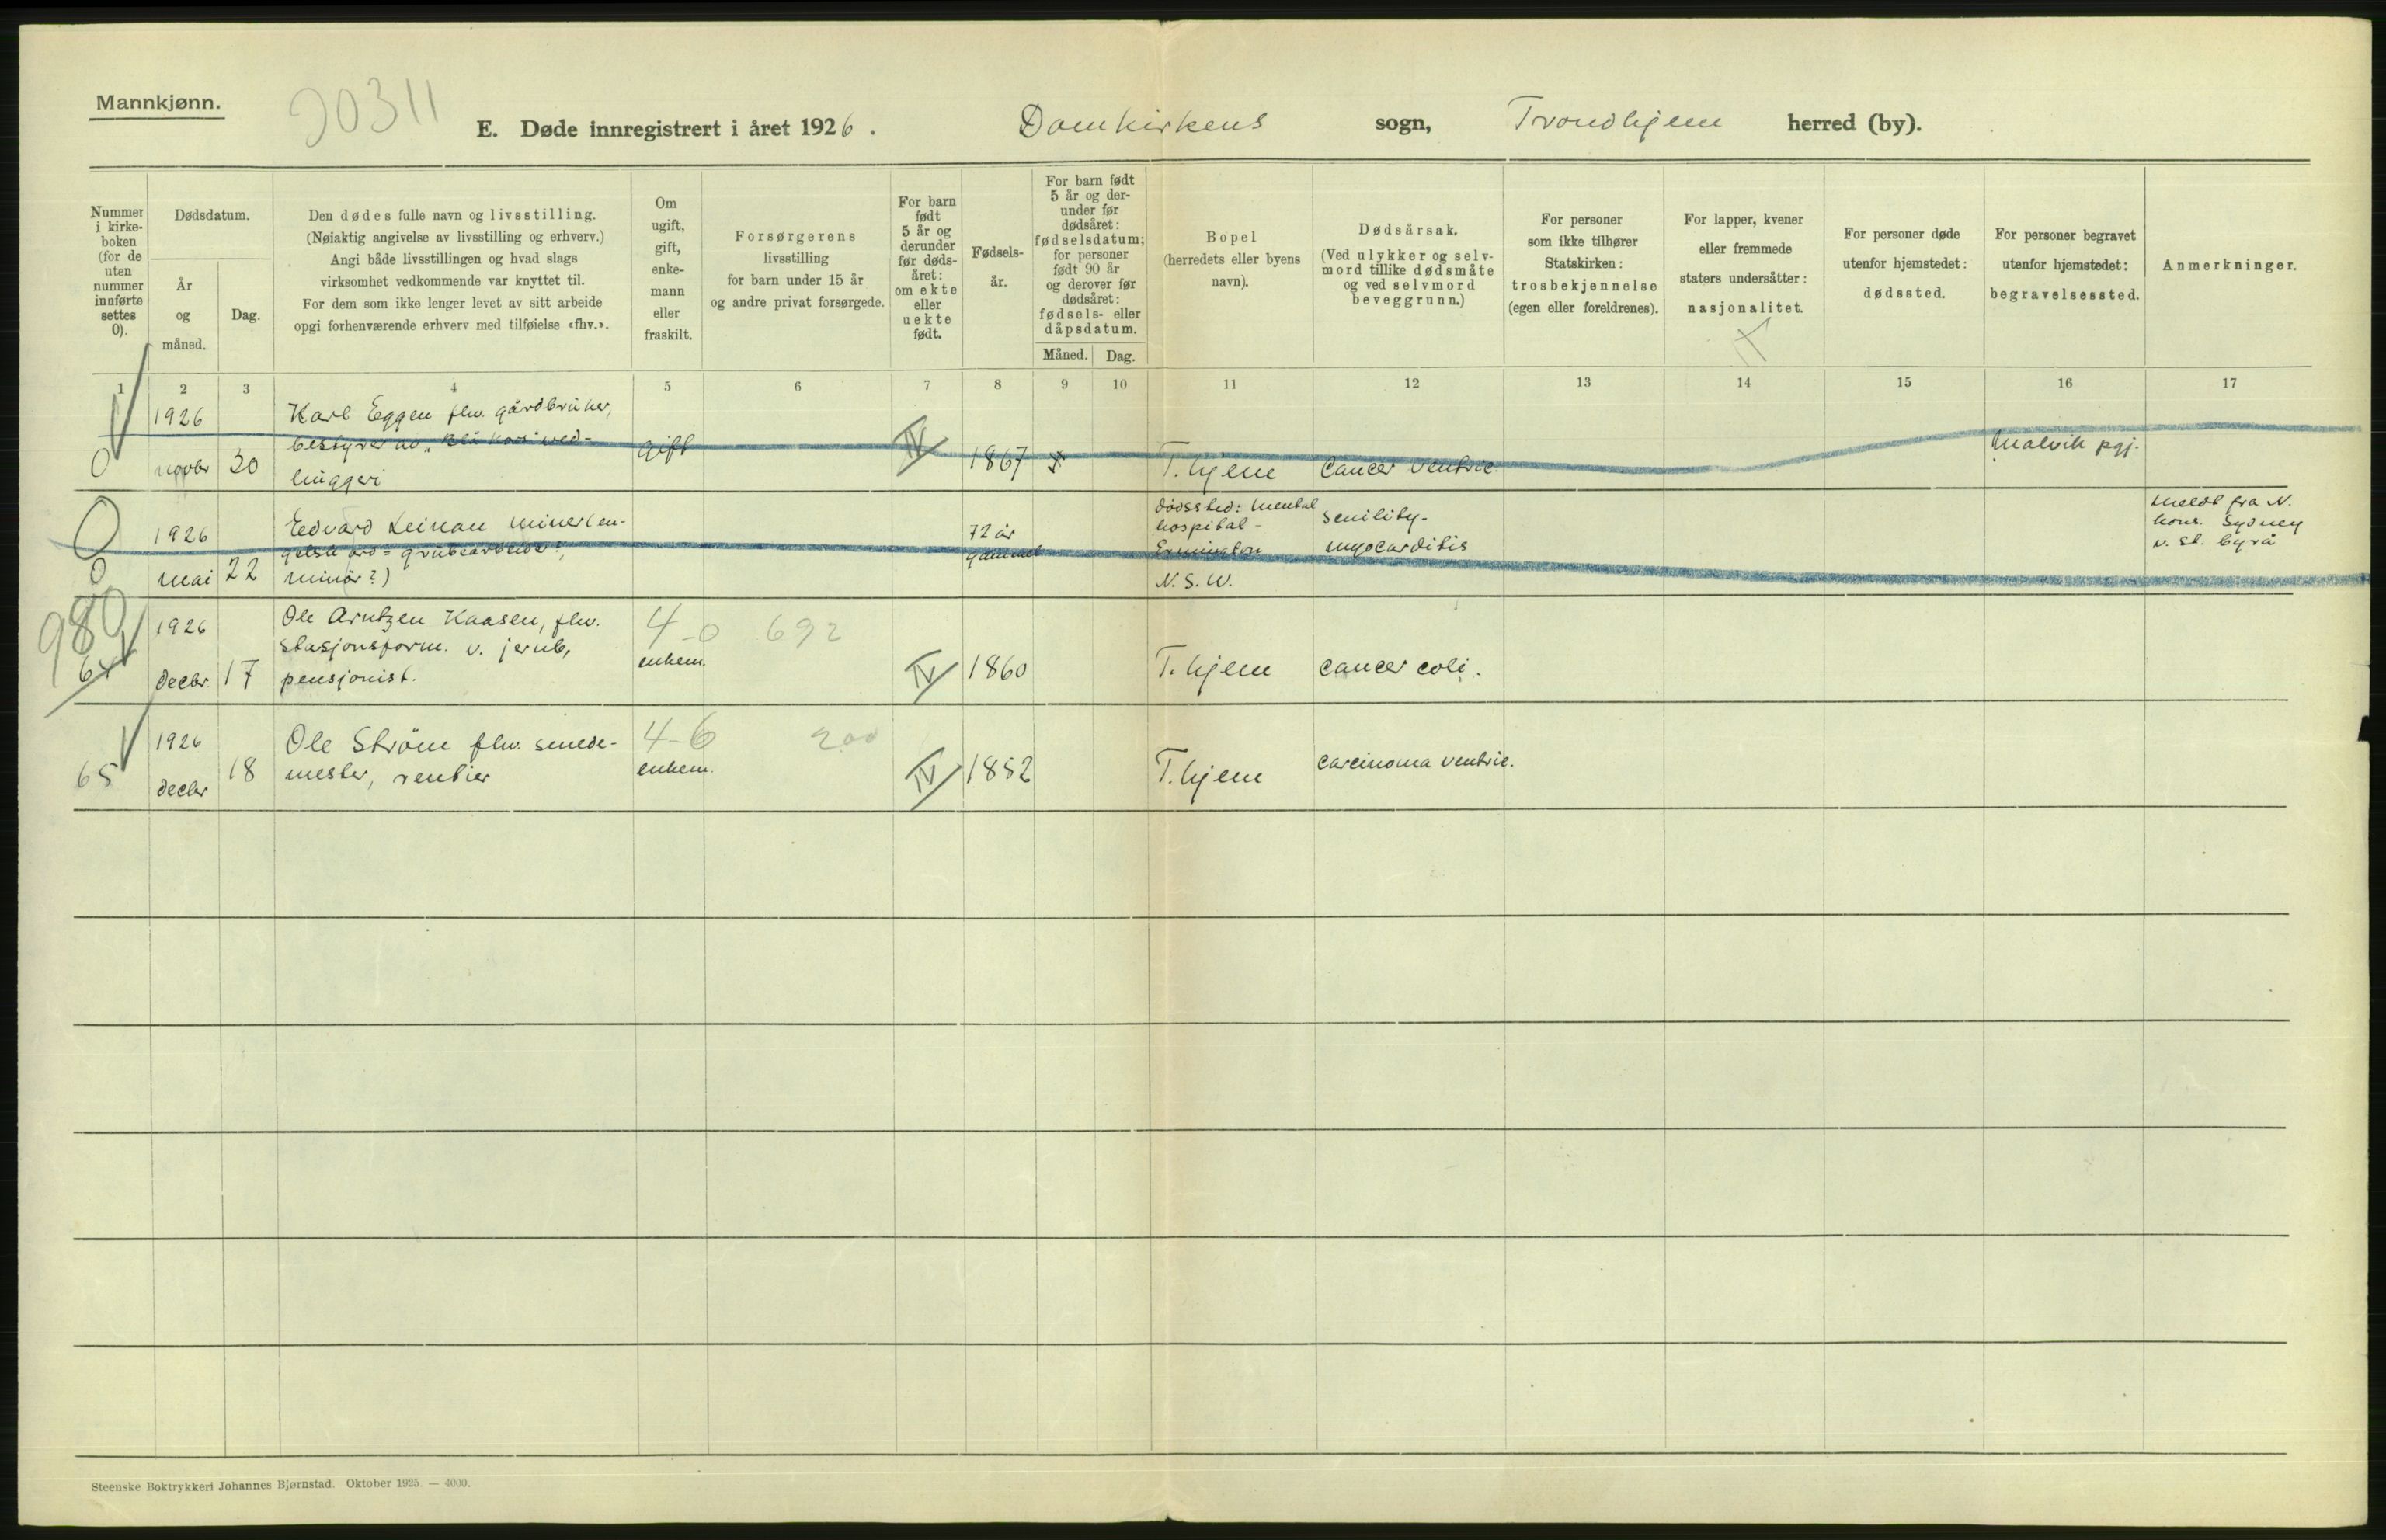 Mannkjønn.
20311
E. Døde innregistrert i året 1926.
Domkirkens sogn, Trondhjem herred (by).
Nummer i kirke-boken (for de uten nummer innførte settes 0).
Dødsdatum.
År og måned.
Dag.
Den dødes fulle navn og livsstilling.
(Nøiaktig angivelse av livsstilling og erhverv.)
Angi både livsstillingen og hvad slags
virksomhet vedkommende var knyttet til.
For dem som ikke lenger levet av sitt arbeide
opgi forhenværende erhverv med tilføielse «fhv.».
Om ugift, gift, enke-mann eller fraskilt.
Forsørgerens
livsstilling
for barn under 15 år
og andre privat forsørgede.
For barn født 5 år og derunder før døds-året: om ekte eller uekte født.
Fødsels-år.
For barn født 5 år og der-under før dødsåret: fødselsdatum; for personer født 90 år og derover før dødsåret: fødsels- eller dåpsdatum.
Måned. Dag.
Bopel
(herredets eller byens navn).
Dødsårsak.
(Ved ulykker og selv-mord tillike dødsmåte og ved selvmord beveggrunn.)
For personer som ikke tilhører Statskirken: trosbekjennelse (egen eller foreldrenes).
For lapper, kvener eller fremmede staters undersåtter: nasjonalitet.
For personer døde utenfor hjemstedet: dødssted.
For personer begravet utenfor hjemstedet: begravelsessted.
Anmerkninger.
1 2 3 4 5 6 7 8 9 10 11 12 13 14 15 16 17
1926 Karl Eggen fhv. gårdbruker,
bestyrer av ved- gift IV Malvik pgj.
0 novbr 30 huggeri 1867 T.hjem Cancer ventric.
0 1926 Edvard Leinan miner (en- 72 år dødssted: Mental hospital - senility - meldt fra N.
gelsk ord = grubearbeider?, gammel Ermington myocarditis kons. Sydney
0 mai 22 minör?) N.S.W. v. st. byrå
980
1926 Ole Arntzen Kaasen, fhv. 4-0 692
stasjonsform. v. jernb, enkem.
64 decbr. 17 pensjonist. IV 1860 T.hjem cancer coli.
1926 Ole Strøm fhv. smede- 4-6 200
65 decbr 18 mester, rentier enkem. IV 1852 T.hjem carcinoma ventric.
Steenske Boktrykkeri Johannes Bjørnstad. Oktober 1925. — 4000.